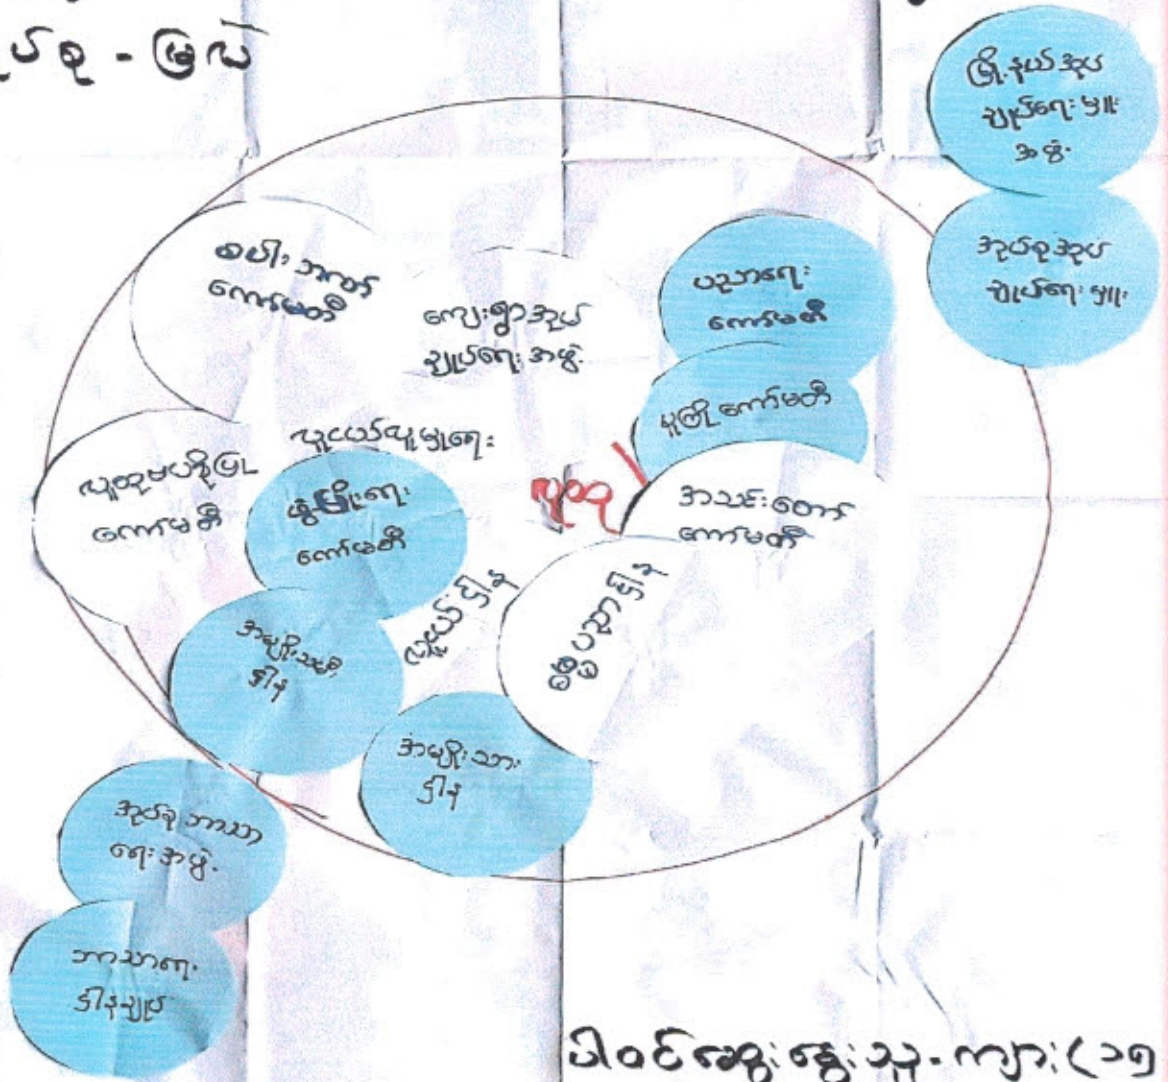 ုပ်စု - မြလဲ
မြို့နယ်အုပ်
ချုပ်ရေးမှူး
အဖွဲ့
အုပ်စုအုပ်
ချုပ်ရေးမှူး
စပါးဘဏ်
ကော်မတီ
ကျေးရွာအုပ်
ချုပ်ရေးအဖွဲ့
ပညာရေး
ကော်မတီ
မူကြို ကော်မတီ
လူငယ်လူမှုရေး
လူထုဗဟိုပြု
ကော်မတီ
ဖွံ့ဖြိုးရေး
ကော်မတီ
လူထု
အသင်းတော်
ကော်မတီ
ဓမ္မပညာဌာန
လူငယ်ဌာန
အမျိုးသမီး
ဌာန
အမျိုးသား
ဌာန
အုပ်စုဘာသာ
ရေးအဖွဲ့
ဘာသာရေး
ဌာနချုပ်
ပါဝင်ဆွေးနွေးသူ-ကျား(၁၅